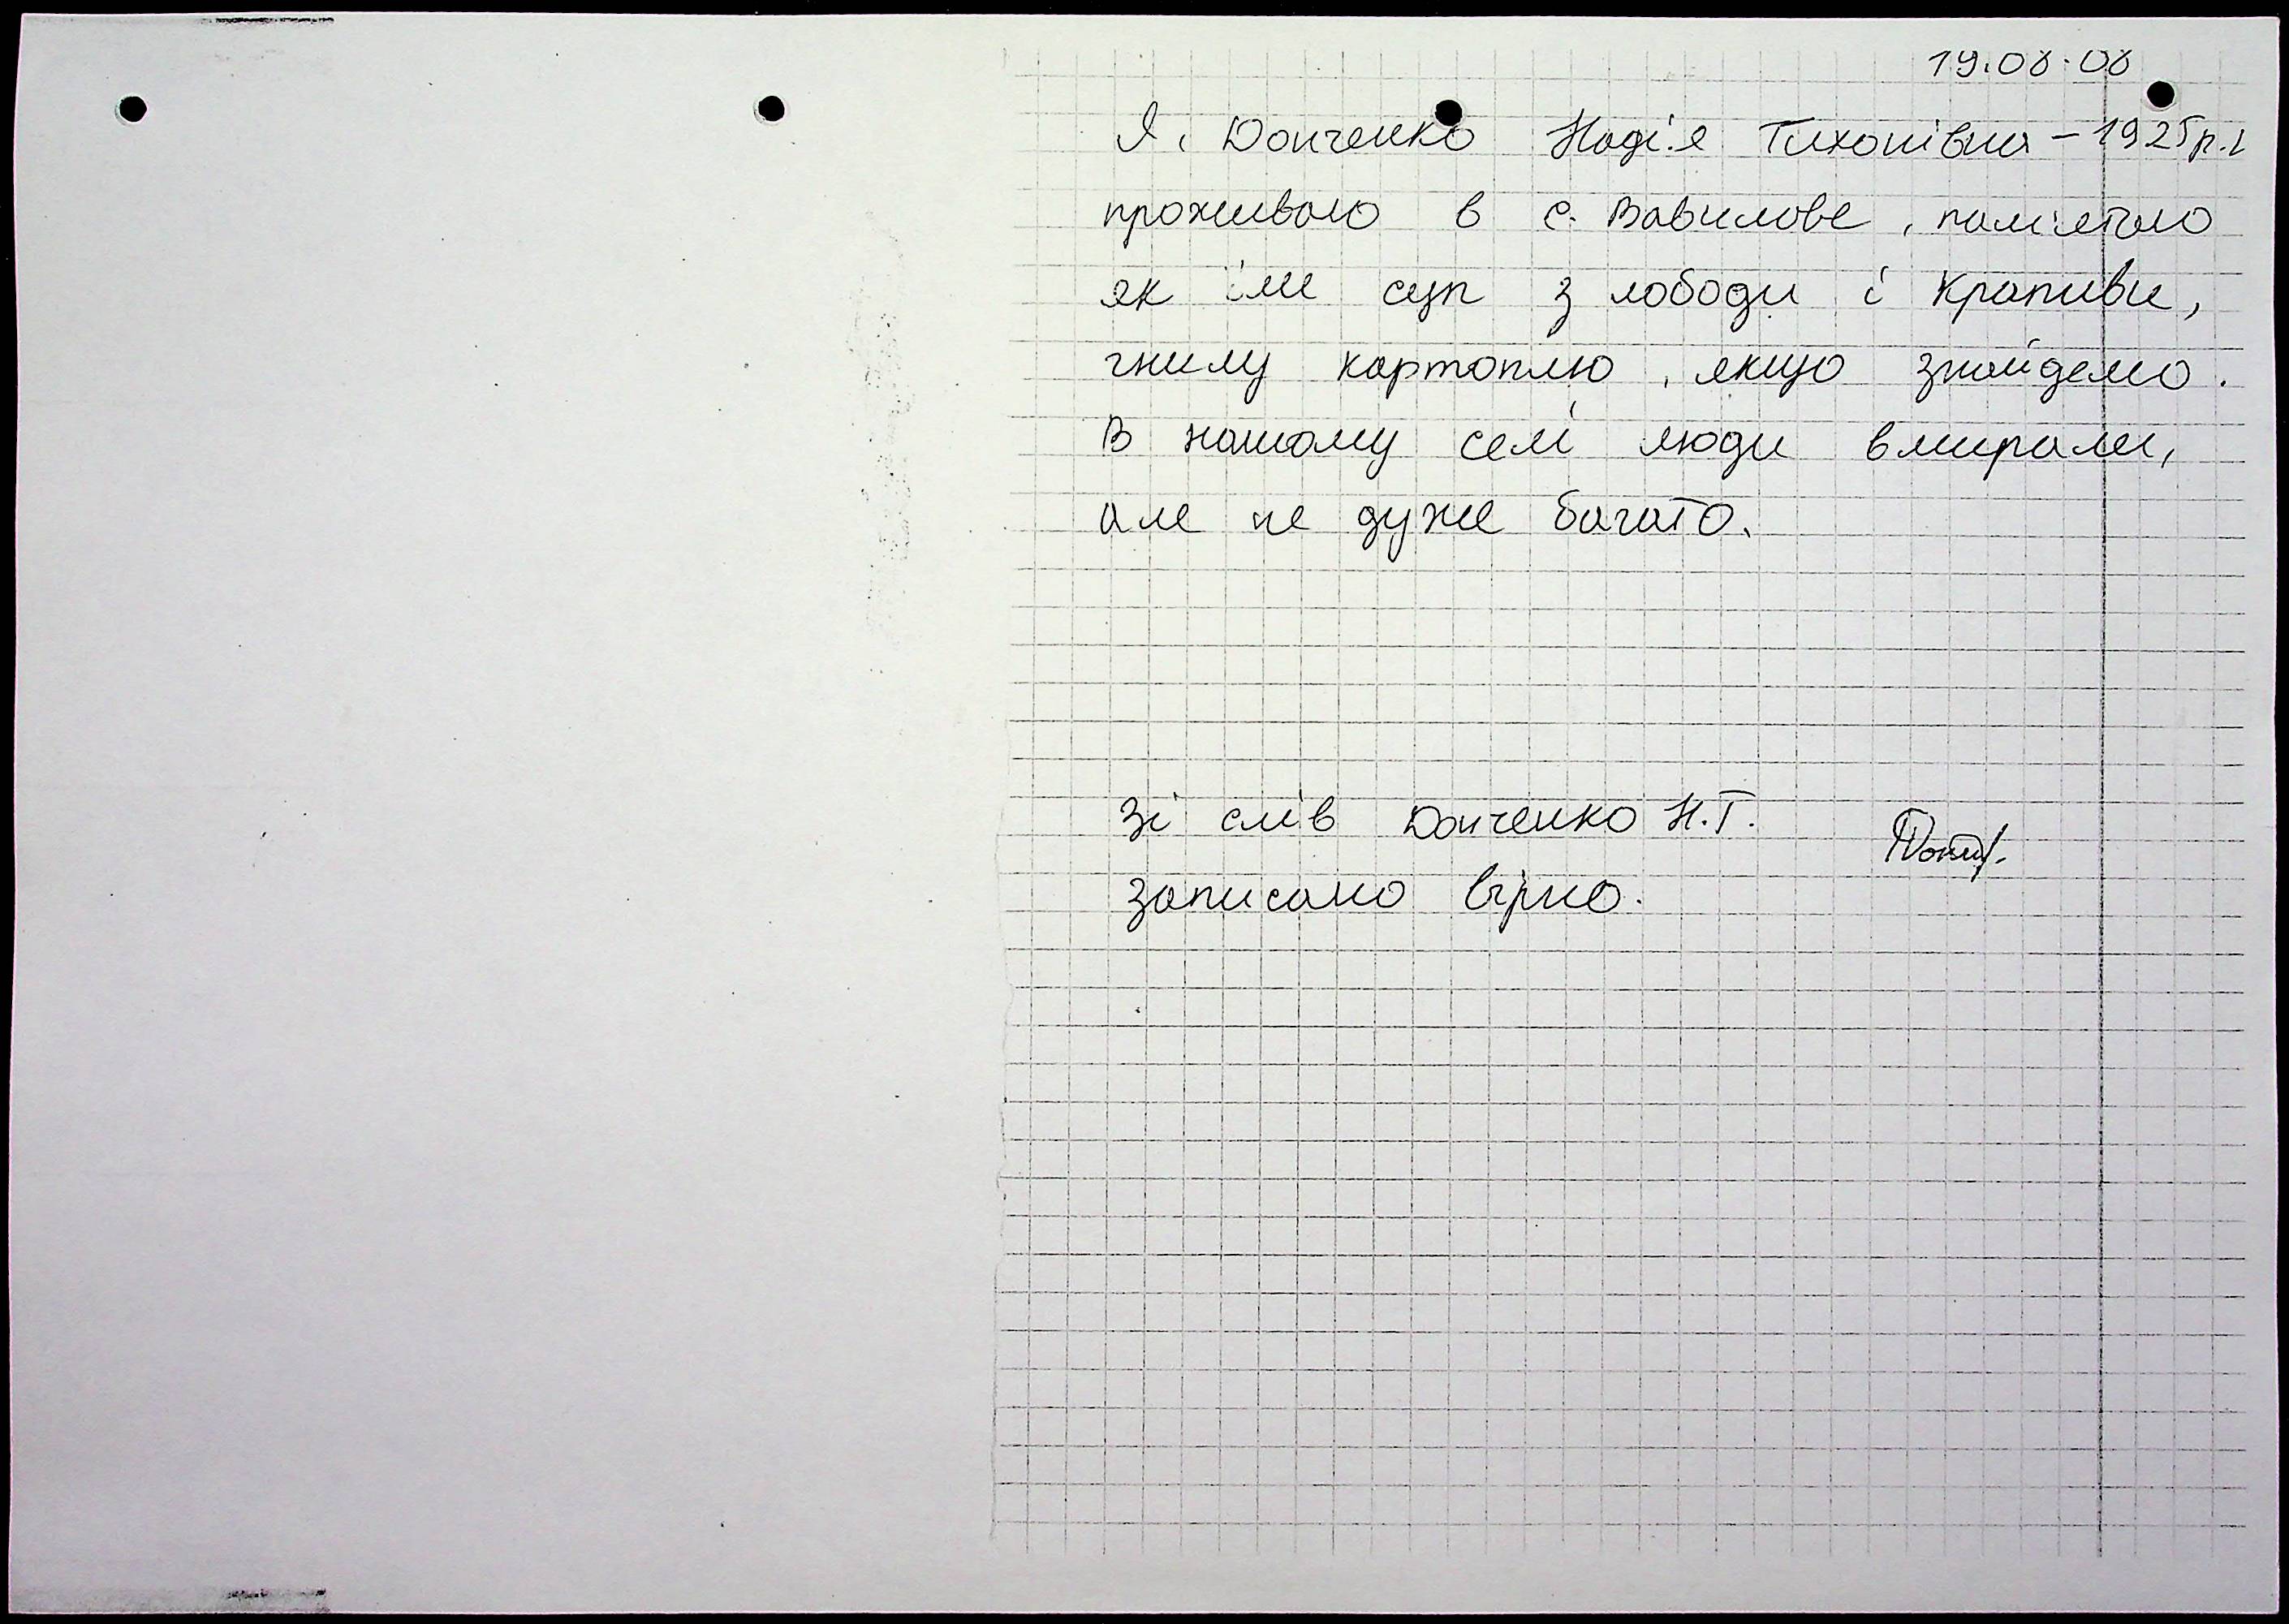 19.08.08
Я, Донченко Надія Тихонівна – 1925 р.
проживаю в с. Вавилове, пам'ятаю
як їли суп з лободи і кропиви,
гнилу картоплю, якщо знайдемо.
В нашому селі люди вмирали,
але не дуже багато.
Зі слів Донченко Н.Т.
записано вірно.